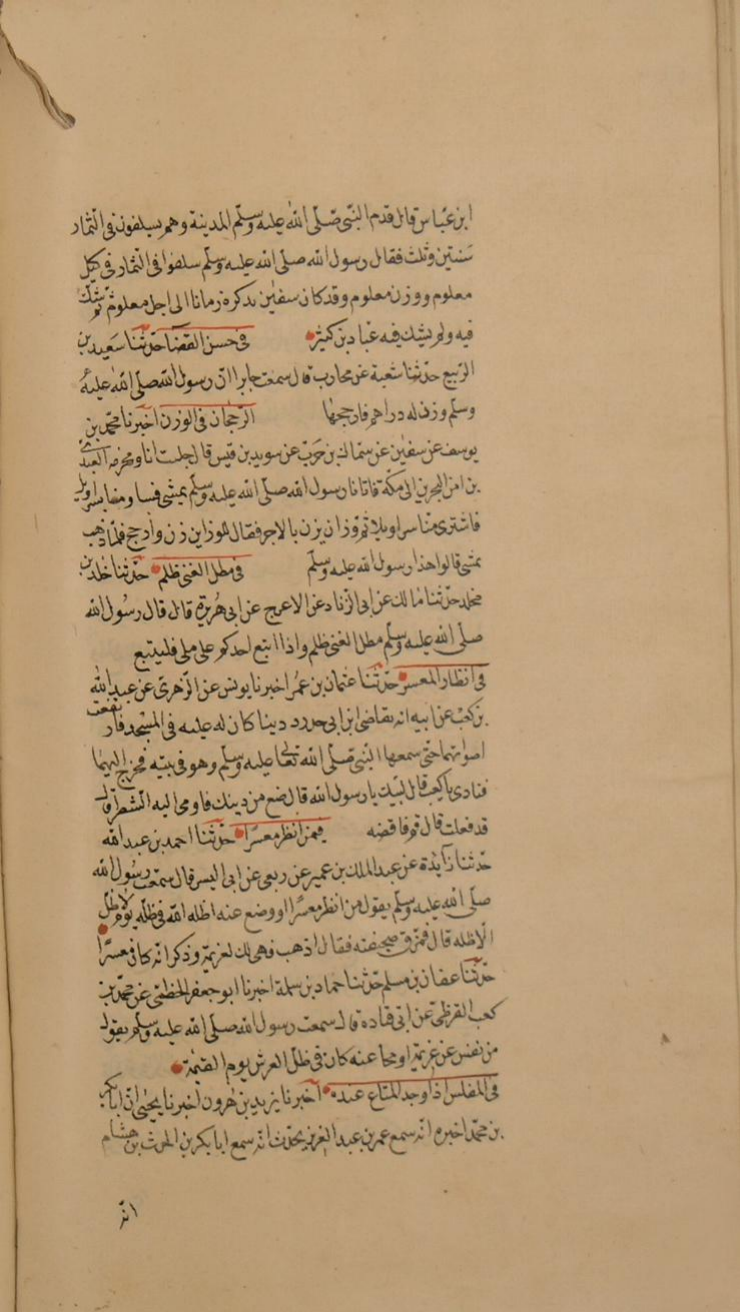 ابن عباس قال قدم النبى صلى الله عليه وسلم المدينة وهم يسلفون فى الثمار
سنتين وثلث فقال رسول الله صلى الله عليه وسلم سلفوا فى الثمار فى كيل
معلوم ووزن معلوم وقد كان سفين يذكره زمانا الى اجل معلوم ثم شك
فيه ولم يشك فيه عباد بن كثير فى حسن القضا حدثنا سعيد بن
الربيع حدثنا شعبة عن محارب قال سمعت جابرا ان رسول الله صلى الله عليه
وسلم وزن له دراهم فارجحها الرجحان فى الوزن اخبرنا محمد بن
يوسف عن سفين عن سماك بن حرب عن سويد بن قيس قال جلبت انا ومخرمه العبدى
بزا من البحرين الى مكة فاتانا رسول الله صلى الله عليه وسلم يمشى فساومنا بسراويل
فاشترى منا سراويلا ثم وزان يزن بالاجر فقال للوزاين زن وارجح فلما ذهب
يمشى قالوا هذا رسول الله عليه وسلم فى مطل الغنى ظلم حدثنا خلد بن
مخلد حدثنا مالك عن ابى الزناد عن الاعرج عن ابى هريرة قال قال رسول الله
صلى الله عليه وسلم مطل الغنى ظلم واذا اتبع احدكم على ملى فليتبع
فى انظار المعسر حدثنا عثمان بن عمر اخبرنا يونس عن الزهرى عن عبد الله
بن كعب عن ابيه انه تقاضى ابن ابى حدرد دينا كان له عليه فى المسجد فارتفعت
اصواتهما حتى سمعها النبى صلى الله تعالى عليه وسلم وهو فى بيته فخرج اليهما
فنادى يا كعب قال لبيك يا رسول الله قال ضع من دينك فاومى اليه الشطر قال
قد فعلت قال قم فاقضه فيمن انظر معسرا حدثنا احمد بن عبد الله
حدثنا زايدة عن عبد الملك بن عمير عن ربعى عن ابى اليسر قال سمعت رسول الله
صلى الله عليه وسلم يقول من انظر معسرا او وضع عنه اظله الله فى ظله يوم لا ظل
الا ظله قال فبزق صحيفته فقال اذهب فهى لك لغريمه وذكر انه كان معسرا
حدثنا عفان بن مسلم حدثنا حماد بن سلمة اخبرنا ابو جعفر الخطمى عن محمد بن
كعب القرظى عن ابى قتاده قال سمعت رسول الله صلى الله عليه وسلم يقول
من نفس عن غريمه او محا عنه كان فى ظل العرش يوم القيمة
فى المفلس اذا وجد المتاع عنده اخبرنا يزيد بن هرون اخبرنا يحيى ان ابا بكر
بن محمد اخبره انه سمع عمر بن عبد العزيز يحدث انه سمع ابا بكر بن الحرث بن هشام
انه